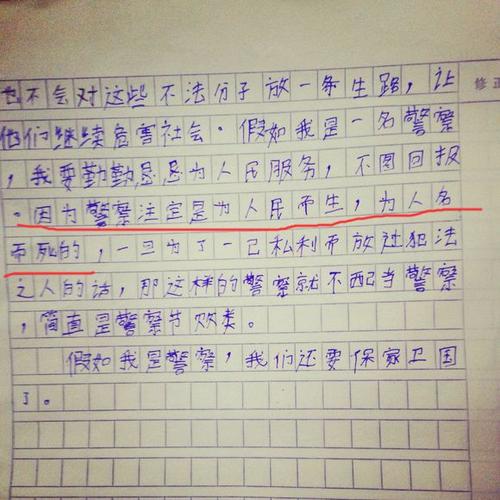 也不会对这些不法分子放一条生路，让
他们继续危害社会。假如我是一名警察
，我要勤勤恳恳为人民服务，不图回报
。因为警察注定是为人民而生，为人名
而死的，一旦为了一己私利而放过犯法
之人的话，那这样的警察就不配当警察
，简直是警察节败类。
假如我是警察，我们还要保家卫国
了。
修正